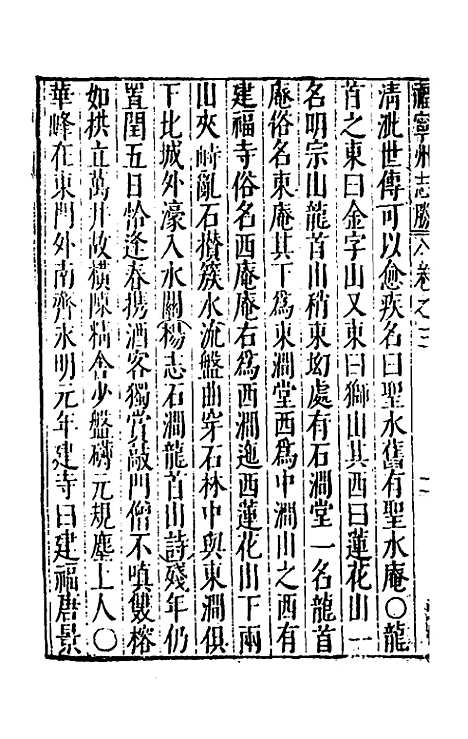 福寧州志勝 卷之三
淸泚世傳可以愈疾名曰聖水舊有聖水庵〇龍
首之東曰金字山又東曰獅山其西曰蓮花山一
名明宗山龍首山稍東坳處有石澗堂一名龍首
庵俗名東庵其下爲東澗堂西爲中澗山之西有
建福寺俗名西庵庵右爲西澗迤西蓮花山下兩
山夾峙亂石攅簇水流盤曲穿石林中與東澗俱
下比城外濠入水關楊志石澗龍首山詩殘年仍
置閏五日恰逢春携酒客獨賞敲門僧不嗔雙榕
如拱立萬井故橫陳精舍少盤礴元規塵上人〇
華峰在東門外南齊永明元年建寺曰建福唐景